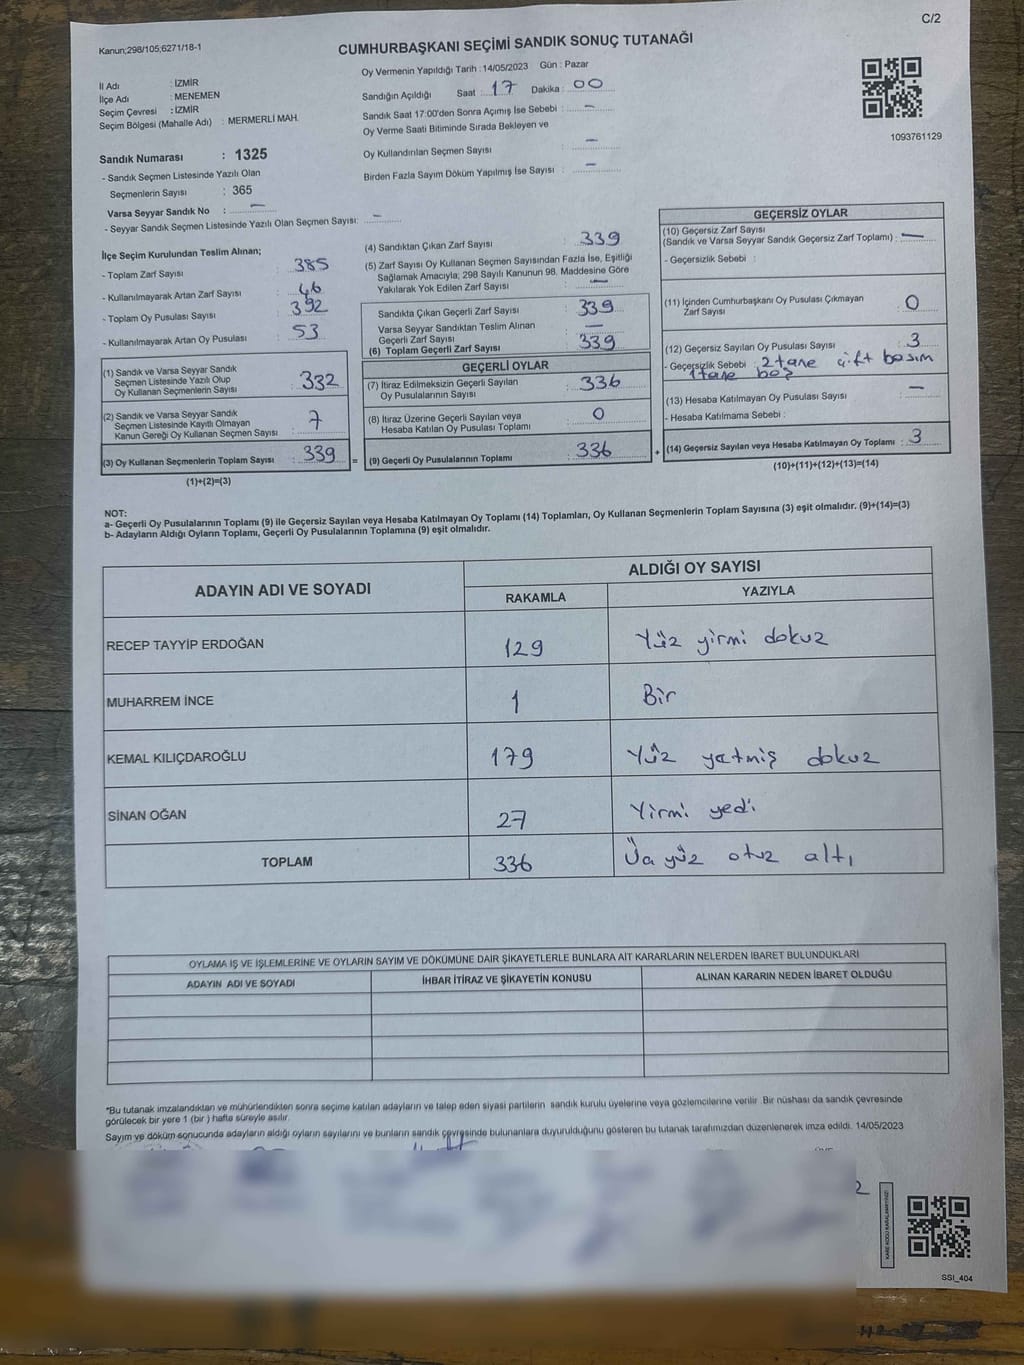 C/2
Kanun;298/105;6271/18-1
CUMHURBAŞKANI SEÇİMİ SANDIK SONUÇ TUTANAĞI
İl Adı : İZMİR
İlçe Adı : MENEMEN
Seçim Çevresi : İZMİR
Seçim Bölgesi (Mahalle Adı) : MERMERLİ MAH.
Oy Vermenin Yapıldığı Tarih : 14/05/2023 Gün : Pazar
Sandığın Açıldığı Saat : 17 Dakika : 00
Sandık Saat 17:00'den Sonra Açımış İse Sebebi : –
Oy Verme Saati Bitiminde Sırada Bekleyen ve
Oy Kullandırılan Seçmen Sayısı –
Birden Fazla Sayım Döküm Yapılmış İse Sayısı : –
1093761129
Sandık Numarası : 1325
- Sandık Seçmen Listesinde Yazılı Olan
Seçmenlerin Sayısı : 365
Varsa Seyyar Sandık No : –
- Seyyar Sandık Seçmen Listesinde Yazılı Olan Seçmen Sayısı: –
İlçe Seçim Kurulundan Teslim Alınan;
- Toplam Zarf Sayısı : 385
- Kullanılmayarak Artan Zarf Sayısı : 46
- Toplam Oy Pusulası Sayısı : 392
- Kullanılmayarak Artan Oy Pusulası : 53
(1) Sandık ve Varsa Seyyar Sandık
Seçmen Listesinde Yazılı Olup
Oy Kullanan Seçmenlerin Sayısı : 332
(2) Sandık ve Varsa Seyyar Sandık
Seçmen Listesinde Kayıtlı Olmayan
Kanun Gereği Oy Kullanan Seçmen Sayısı : 7
(3) Oy Kullanan Seçmenlerin Toplam Sayısı : 339 =
(1)+(2)=(3)
(4) Sandıktan Çıkan Zarf Sayısı : 339
(5) Zarf Sayısı Oy Kullanan Seçmen Sayısından Fazla İse, Eşitliği
Sağlamak Amacıyla; 298 Sayılı Kanunun 98. Maddesine Göre
Yakılarak Yok Edilen Zarf Sayısı : –
Sandıkta Çıkan Geçerli Zarf Sayısı : 339
Varsa Seyyar Sandıktan Teslim Alınan
Geçerli Zarf Sayısı : –
(6) Toplam Geçerli Zarf Sayısı : 339
GEÇERLİ OYLAR
(7) İtiraz Edilmeksizin Geçerli Sayılan
Oy Pusulalarının Sayısı : 336
(8) İtiraz Üzerine Geçerli Sayılan veya
Hesaba Katılan Oy Pusulası Toplamı : 0
(9) Geçerli Oy Pusulalarının Toplamı : 336 +
GEÇERSİZ OYLAR
(10) Geçersiz Zarf Sayısı
(Sandık ve Varsa Seyyar Sandık Geçersiz Zarf Toplamı) : –
- Geçersizlik Sebebi :
(11) İçinden Cumhurbaşkanı Oy Pusulası Çıkmayan
Zarf Sayısı : 0
(12) Geçersiz Sayılan Oy Pusulası Sayısı : 3
- Geçersizlik Sebebi : 2 tane çift basım
1 tane boş
(13) Hesaba Katılmayan Oy Pusulası Sayısı : –
- Hesaba Katılmama Sebebi :
(14) Geçersiz Sayılan veya Hesaba Katılmayan Oy Toplamı : 3
(10)+(11)+(12)+(13)=(14)
NOT:
a- Geçerli Oy Pusulalarının Toplamı (9) ile Geçersiz Sayılan veya Hesaba Katılmayan Oy Toplamı (14) Toplamları, Oy Kullanan Seçmenlerin Toplam Sayısına (3) eşit olmalıdır. (9)+(14)=(3)
b- Adayların Aldığı Oyların Toplamı, Geçerli Oy Pusulalarının Toplamına (9) eşit olmalıdır.
ADAYIN ADI VE SOYADI
ALDIĞI OY SAYISI
RAKAMLA YAZIYLA
RECEP TAYYİP ERDOĞAN 129 Yüz yirmi dokuz
MUHARREM İNCE 1 Bir
KEMAL KILIÇDAROĞLU 179 Yüz yetmiş dokuz
SİNAN OĞAN 27 Yirmi yedi
TOPLAM 336 Üç yüz otuz altı
OYLAMA İŞ VE İŞLEMLERİNE VE OYLARIN SAYIM VE DÖKÜMÜNE DAİR ŞİKAYETLERLE BUNLARA AİT KARARLARIN NELERDEN İBARET BULUNDUKLARI
ADAYIN ADI VE SOYADI İHBAR İTİRAZ VE ŞİKAYETİN KONUSU ALINAN KARARIN NEDEN İBARET OLDUĞU
*Bu tutanak imzalandıktan ve mühürlendikten sonra seçime katılan adayların ve talep eden siyasi partilerin sandık kurulu üyelerine veya gözlemcilerine verilir. Bir nüshası da sandık çevresinde
görülecek bir yere 1 (bir ) hafta süreyle asılır.
Sayım ve döküm sonucunda adayların aldığı oyların sayılarını ve bunların sandık çevresinde bulunanlara duyurulduğunu gösteren bu tutanak tarafımızdan düzenlenerek imza edildi. 14/05/2023
KARE KODU KARALAMAYINIZ!
SSI_404